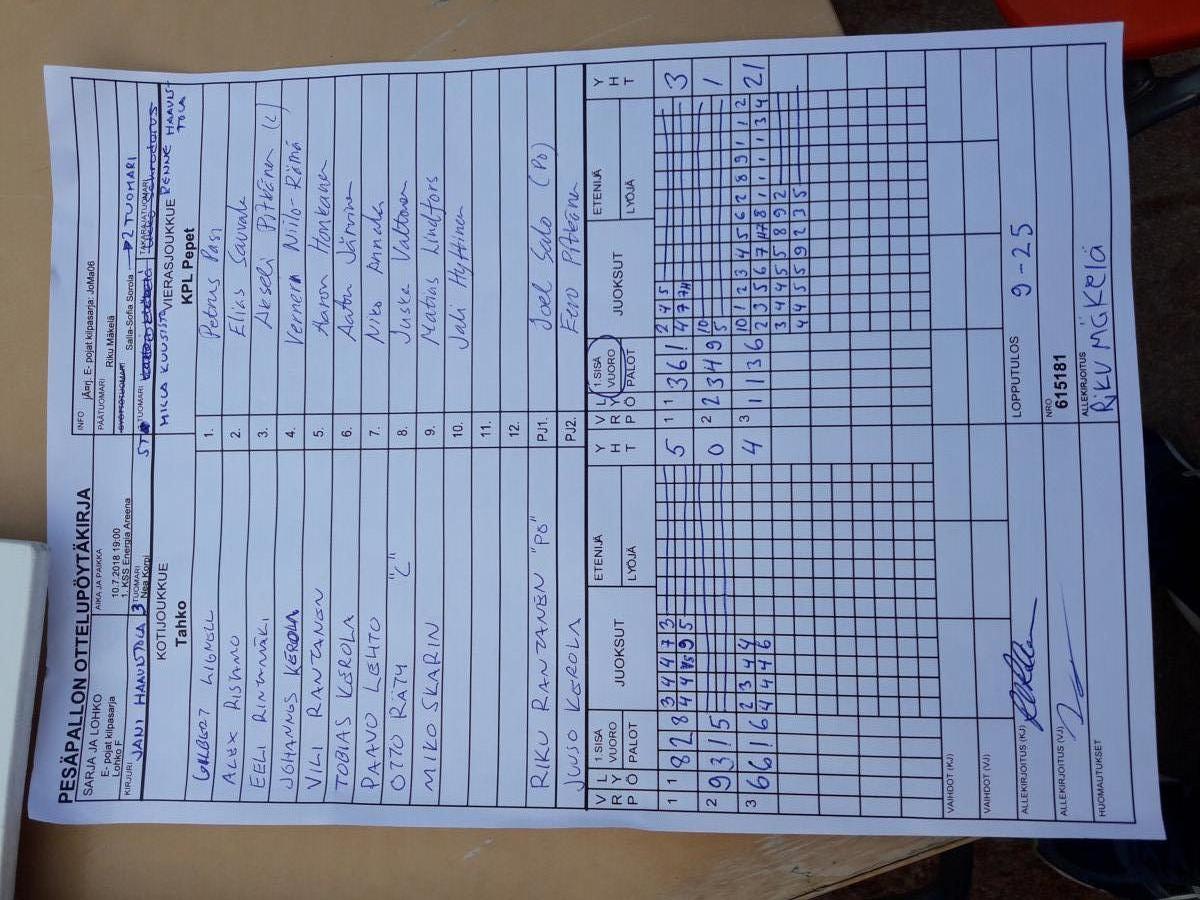 PESÄPALLON OTTELUPÖYTÄKIRJA
SARJA JA LOHKO
E- pojat kilpasarja
Lohko F
AIKA JA PAIKKA
10.7.2018 19:00
1. KSS Energia Areena
INFO
E- pojat kilpasarja: JoMa06
PÄÄTUOMARI Riku Mäkelä
SYÖTTÖTUOMARI Salla-Sofia Sorola → 2 TUOMARI
KIRJURI JANI HAAVISTOLA
3 TUOMARI Nea Korpi
TUOMARI
TAKARAJATUOMARI
MILLA KUUSISTO
RENNE HAAVISTOLA
KOTIJOUKKUE
Tahko
VIERASJOUKKUE
KPL Pepet
GILBERT LIGNELL 1. Petrus Pasi
ALEX RISHMO 2. Elias Sauvala
EELI RINTAMÄKI 3. Akseli Pitkänen (L)
JOHANNES KEROLA 4. Verneri Nilo-Rämä
VILI RANTANEN 5. Aaron Honkanen
TOBIAS KEROLA 6. Aaton Järvinen
PAAVO LEHTO 7. Niko Annala
OTTO RÄTY "L" 8. Juska Valtonen
MIKO SKARIN 9. Matias Lindfors
10. Jali Hyttinen
11.
12.
RIKU RANTANEN "PÖ" PJ1. Joel Salo (PÖ)
JUUSO KEROLA PJ2. Eino Pitkänen
V R P L Y Ö 1.SISÄ VUORO PALOT JUOKSUT ETENIJÄ LYÖJÄ Y H T V R P L Y Ö 1.SISÄ VUORO PALOT JUOKSUT ETENIJÄ LYÖJÄ Y H T
1 1 8 2 8 3 4 4 7 3 5 1 1 3 6 1 2 4 5 3
4 4 9 5 4 7
2 9 3 1 5 0 2 2 3 4 9 10 1
5
3 6 6 1 6 2 3 4 4 4 3 1 1 3 6 10 1 2 3 4 5 6 2 8 9 1 1 2 21
4 4 4 6 2 3 5 6 7 8 1 1 1 3 4
3 4 4 5 5 8 9 2
4 4 5 5 9 2 3 5
VAIHDOT (KJ)
VAIHDOT (VJ)
ALLEKIRJOITUS (KJ)
LOPPUTULOS 9-25
ALLEKIRJOITUS (VJ)
NRO
615181
HUOMAUTUKSET
ALLEKIRJOITUS
RIKU MÄKELÄ